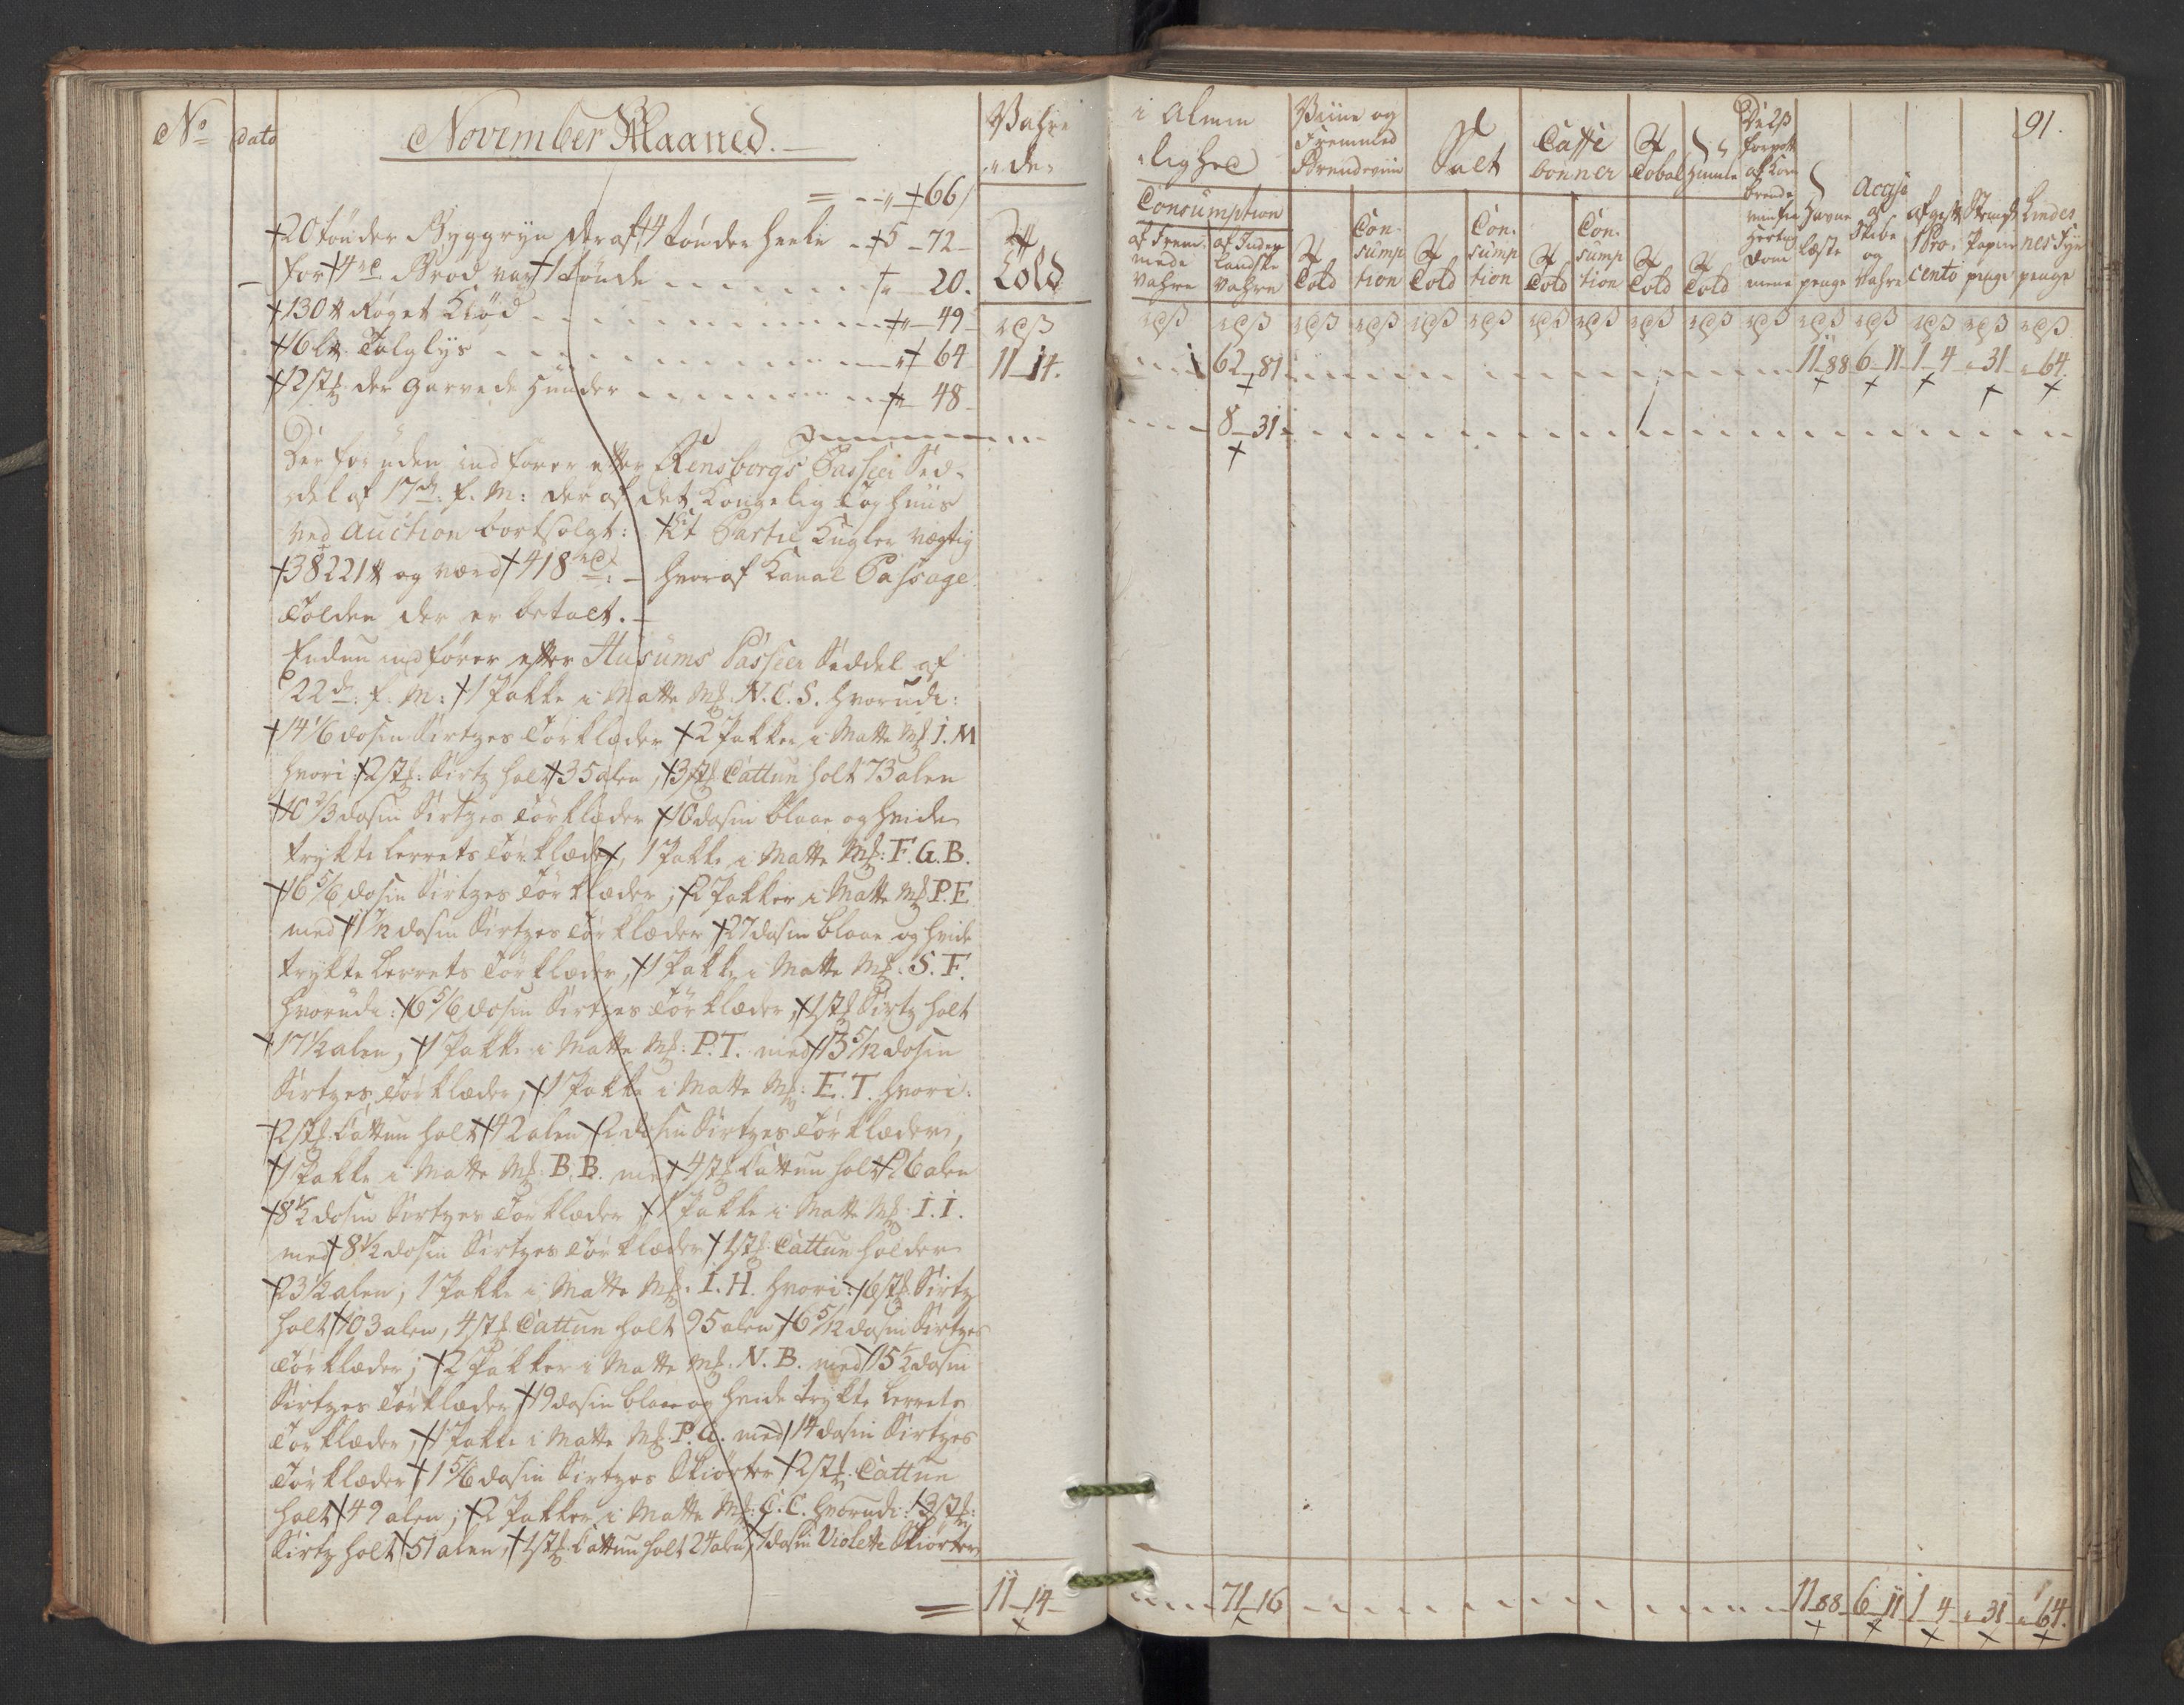 No
Dato
November Maaned.
= - " - 66/
20 Tønder Byggryn deraf 4 Tønder heele - 5 - 72 -
for 4 rd Brød var 1 Tønde - - - " - 20.
130 ℔ Røget Kiød - - - " - 49 -
6 l℔ Talglys - - - " - 64
12 stk der garvede Hunder - - - " - 48 -
Der foruden indfører efter Rensborgs Passeer Sed-
del af 17de f. M: der af det Kongelig Tøyhuus
ved Auction bortsolgt: Et Partie Kugler vægtig
38221 ℔ og værd 418 rd: - hvoraf Kanal Passage
Tolden der er betalt. -
Endnu indfører efter Husums Passeer Seddel af
22de f. M: 1 Pakke i Matte Mk: N.C.S. hvorudi:
14 1/6 dosin Sirtzes Tørklæder 2 Pakker i Matte Mk I.M
hvori: 2 stk: Sirtz holt 35 alen, 3 stk Cattun holt 73 alen
10 2/3 dosin Sirtzes Tørklæder 10 dosin blaae og hvide
trykte Lerrets Tørklæder, 1 Pakke i Matte Mk: F.G.B.
16 5/6 dosin Sirtzes Tørklæder; 2 Pakker i Matte Mk P.E
med dosin Sirtzes Tørklæder 27 dosin blaae og hvide
trykte Lerrets Tørklæder, 1 Pakke i Matte Mk: S.F.
hvorudi: 6 5/6 dosin Sirtzes Tørklæder, 1 stk Sirtz holt
17 1/2 alen, 1 Pakke i Matte Mk: P.T. med 13 5/12 dosin
Sirtzes Tørklæder, 1 Pakke i Matte Mk: E.T. hvori:
2 stk Cattun holt 42 alen 2 dosin Sirtzes Tørklæder,
1 Pakke i Matte Mk: B.B. med 4 stk Cattun holt 26 alen
8 1/2 dosin Sirtzes Tørklæder 1 Pakke i Matte Mk: I.I.
med 8 1/2 dosin Sirtzes Tørklæder 1 stk Cattun holder
23 1/2 alen; 1 Pakke i Matte Mk: I.H. hvori: 6 stk Sirtz
holt 103 alen, 4 stk Cattun holt 95 alen 6 5/12 dosin Sirtzes
Tørklæder; 2 Pakker i Matte Mk: N.B. med 15 1/2 dosin
Sirtzes Tørklæder 19 dosin blaae og hvide trykte Lerrets
Tørklæder, 1 Pakke i Matte Mk: P.G. med 14 dosin Sirtzes
Tørklæder 1 5/6 dosin Sirtzes Skiørter 2 stk: Cattun
holt 49 alen; 2 Pakker i Matte Mk: C.C. hvorudi: 3 stk:
Sirtz holt 51 alen, 1 stk: Cattun holt 24 alen, 1 dosin Violette Skiørter
Vahre
Told
rdß
11 - 14.
= 11 - 14 -
91.
i Almin
lighed
Consumption
af Frem
mede
Vahre
af Inden
landske
Vahre
Viine og
Fremmed
Brændeviin
Told
Con-
sump
tion
Salt
Told
Con-
sump
tion
Caffe
bønner
Told
Con-
sump
tion
Tobak
Told
Humle
Told
De 2ß
brænde
viin fra
Hertug
dom
mene
Havne
læste
penge
Accise
af
Skibe
og
Vahre
afgift
1 Pro
cento
Stempl
Papir
penge
Lindes
nes Fyr
penge
rdß rdß rdß rdß rdß rdß rdß rdß rdß rdß rdß rdß rdß rdß rdß rdß
62 - 81 - - - 11 - 88 6 - 11 1 - 4 " 31 " 64
8 - 31 - - -
71 - 16 - - - 11 - 88 6 - 11 1 - 4 " 31 " 64.